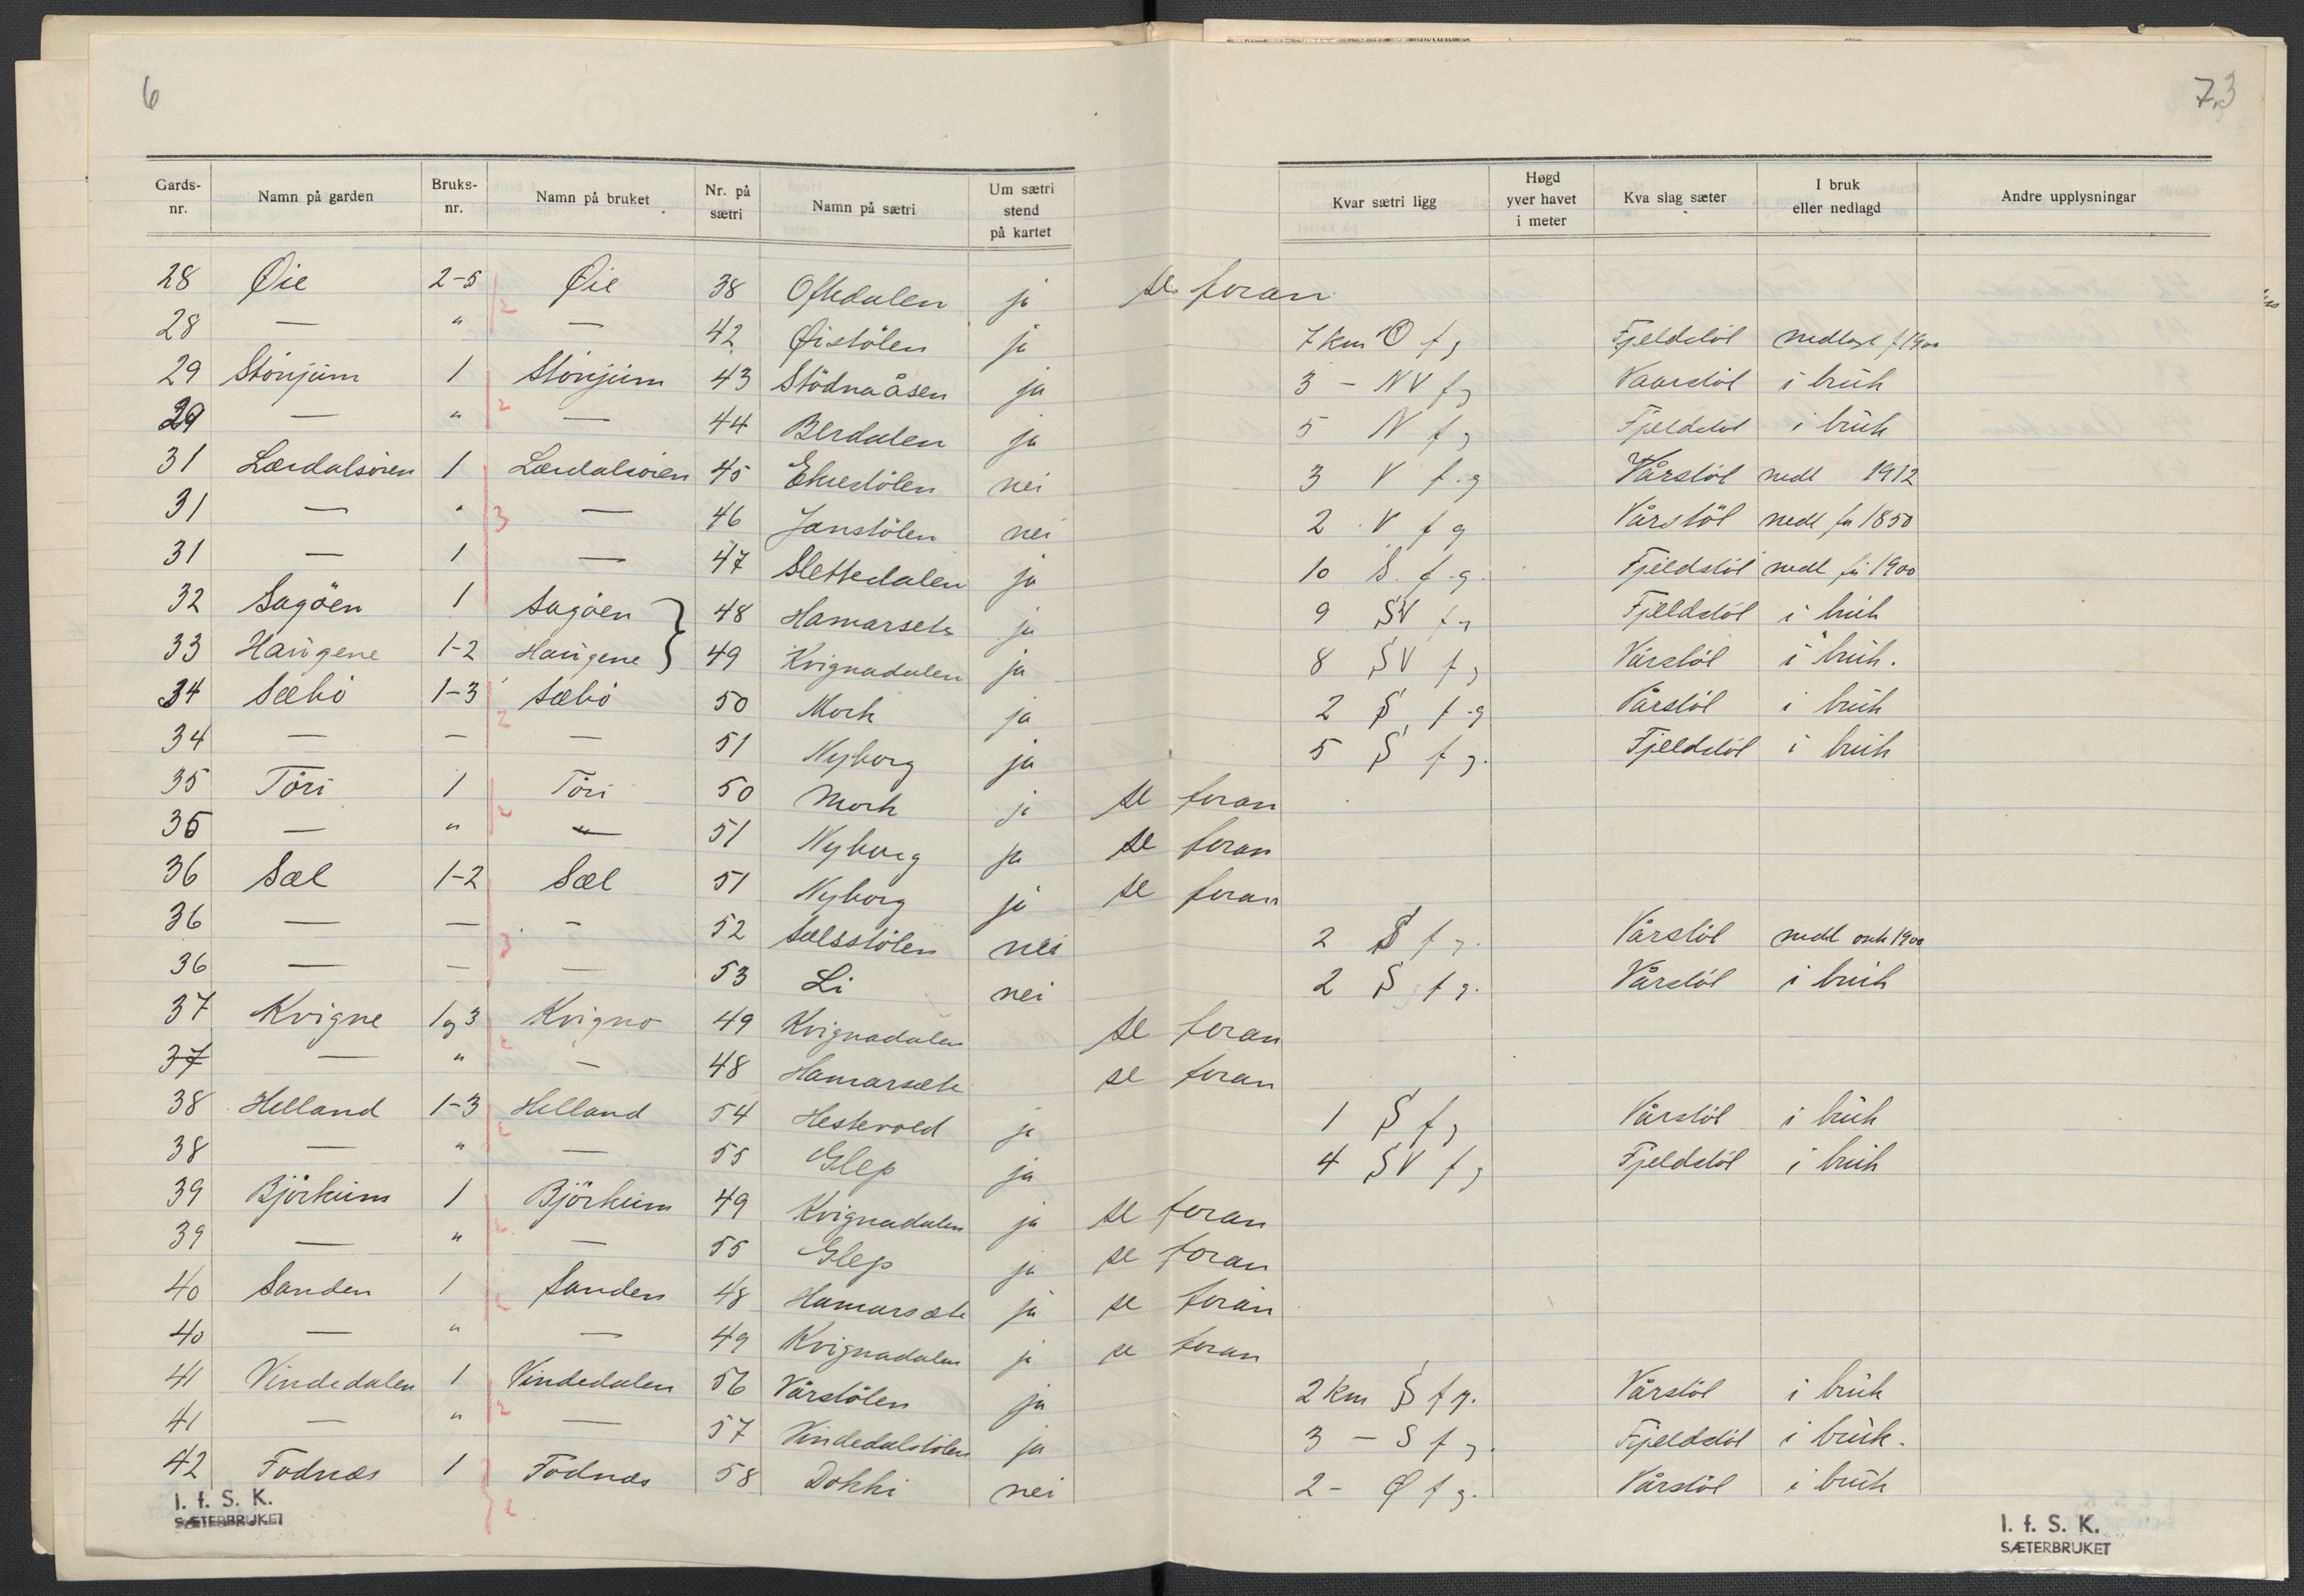 6
7.3
Gards-nr. Namn på garden Bruks-nr. Namn på bruket Nr. på sætri Namn på sætri Um sætri stend på kartet Kvar sætri ligg Høgd yver havet i meter Kva slag sæter I bruk eller nedlagd Andre upplysningar
28 Øie 2-5 Øie 38 Ofthedalen ja se foran
28 — " — 42 Øistölen ja 7 km Ø f g Fjeldstöl nedlagt f 1900
29 Stönjum 1 Stönjum 43 Stödnaåsen ja 3 - NV f g Vaarstöl i bruk
29 — " — 44 Berdalen ja 5 N f g Fjeldstöl i bruk
31 Lærdalsören 1 Lærdalsören 45 nei 3 V f.g Vårstöl nedl 1912
31 — " 3 — 46 Janstölen nei 2 V f g Vårstöl nedl før 1850
31 — 1 — 47 Slettedalen ja 10 S. f.g. Fjeldstöl nedl før 1900
32 Sagöen 1 Sagöen 48 Hamarsete ja 9 SV f g Fjeldstöl i bruk
33 Haugene 1-2 Haugene 49 Kvignadalen ja 8 SV f g Vårstöl i bruk.
34 Sæbö 1-3 Sæbö 50 Mork ja 2 S f g Vårstöl i bruk
34 — — 2 — 51 Nyborg ja 5 S f g. Fjeldstöl i bruk
35 Töri 1 Töri 50 Mork ja se foran
35 — " — 51 Nyborg ja se foran
36 Sæl 1-2 Sæl 51 Nyborg ja se foran
36 — — - 52 Sælsstölen nei 2 S f g. Vårstöl nedl omk 1900
36 — — 3 — 53 Li nei 2 S f g. Vårstöl i bruk
37 Kvigne 1 og 3 Kvigno 49 Kvignadalen se foran
37 — " — 48 Hamarsæte se foran
38 Helland 1-3 Helland 54 Hestevold ja 1 S f g Vårstöl i bruk
38 — " — 55 Glep ja 4 SV f g Fjeldstöl i bruk
39 Björkum 1 Björkum 49 Kvignadalen ja se foran
39 — " — 55 Glep ja se foran
40 Sanden 1 Sanden 48 Hamarsæte ja se foran
40 — " — 49 Kvignadalen ja se foran
41 Vindedalen 1 Vindedalen 56 Vårstölen ja 2 km S f g. Vårstöl i bruk
41 — " 2 — 57 Vindedalstölen ja 3 - S f g. Fjeldstöl i bruk.
42 Fodnæs 1 Fodnæs 58 Dokki nei 2 - Ø f g. Vårstöl i bruk
I. f. S. K.
SÆTERBRUKET
I. f. S. K.
SÆTERBRUKET